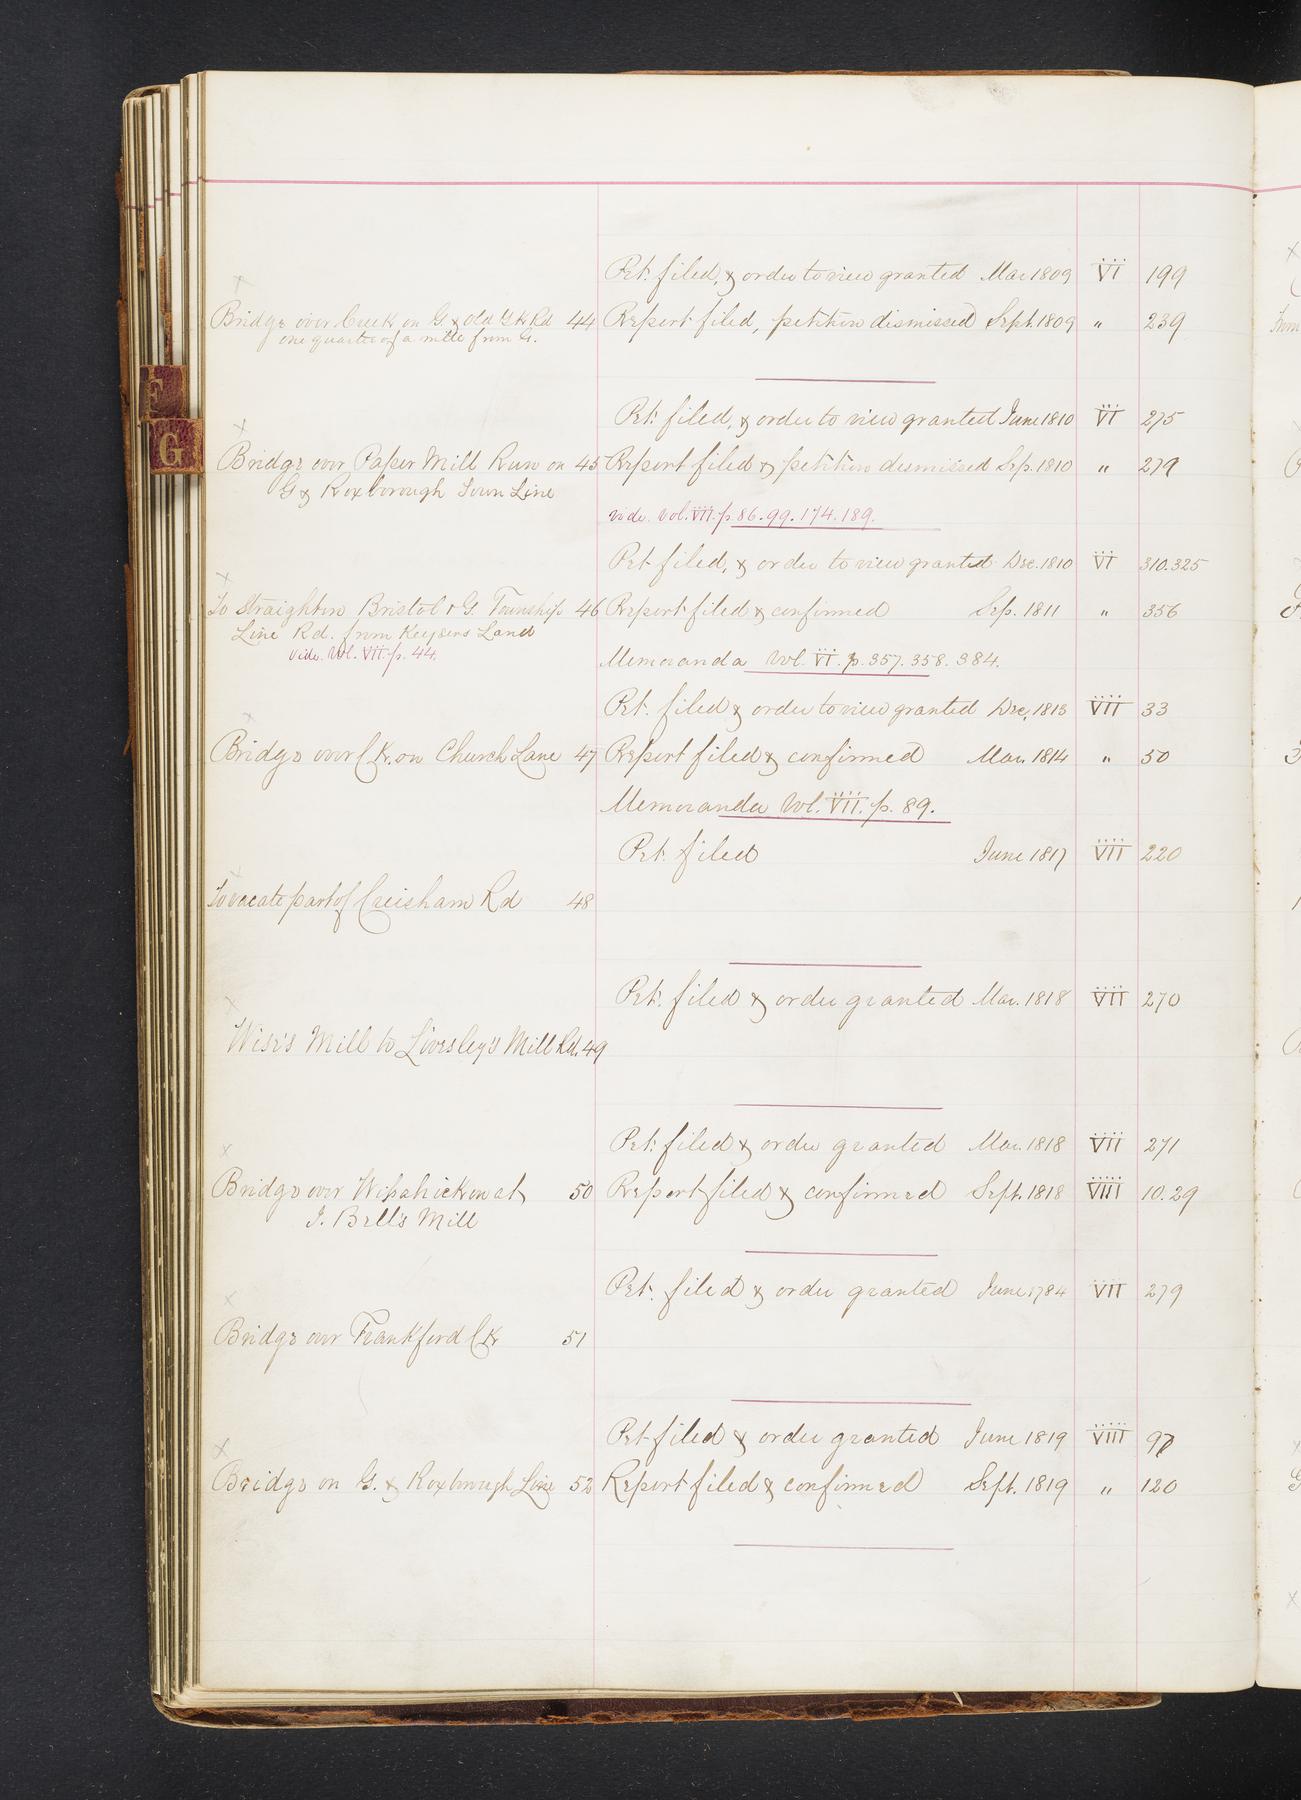 Pet. filed, & order to view granted Mar 1809 VI 199
Bridge over Creek on G. & old Yk Rd 44 Report filed, petition dismissed Sept. 1809 " 239
one quarter of a mile from G.
F
Pet. filed, & order to view granted June 1810 VI 275
G
Bridge over Paper Mill Run on 45 Report filed & petition dismissed Sep. 1810 " 279
G & Roxborough Town Line
vide. Vol. VII. p. 86. 99. 174. 189.
Pet filed, & order to view granted Dec. 1810 VI 310. 325
To Straighten Bristol & G. Township 46 Report filed & confirmed Sep. 1811 " 356
Line Rd. from Keysers Land
vide. Vol. VII. p. 44.
Memoranda Vol. VI. p. 357. 358. 384.
Pet. filed & order to view granted Dec. 1813 VII 33
Bridge over Ck. on Church Lane 47 Report filed & confirmed Mar. 1814 " 50
Memoranda Vol. VII. p. 89.
Pet. filed June 1817 VII 220
To vacate part of Creisham Rd 48
Pet. filed & order granted Mar. 1818 VII 270
Wise's Mill to Livesley's Mill Rd. 49
Pet. filed & order granted Mar. 1818 VII 271
Bridge over Wissahickon at 50 Report filed & confirmed Sept. 1818 VIII 10. 29
J. Bell's Mill
Pet. filed & order granted June 1784 VII 279
Bridge over Frankford Ck 51
Pet filed & order granted June 1819 VIII 97
Bridge on G. & Roxborough Line 52 Report filed & confirmed Sept. 1819 " 120